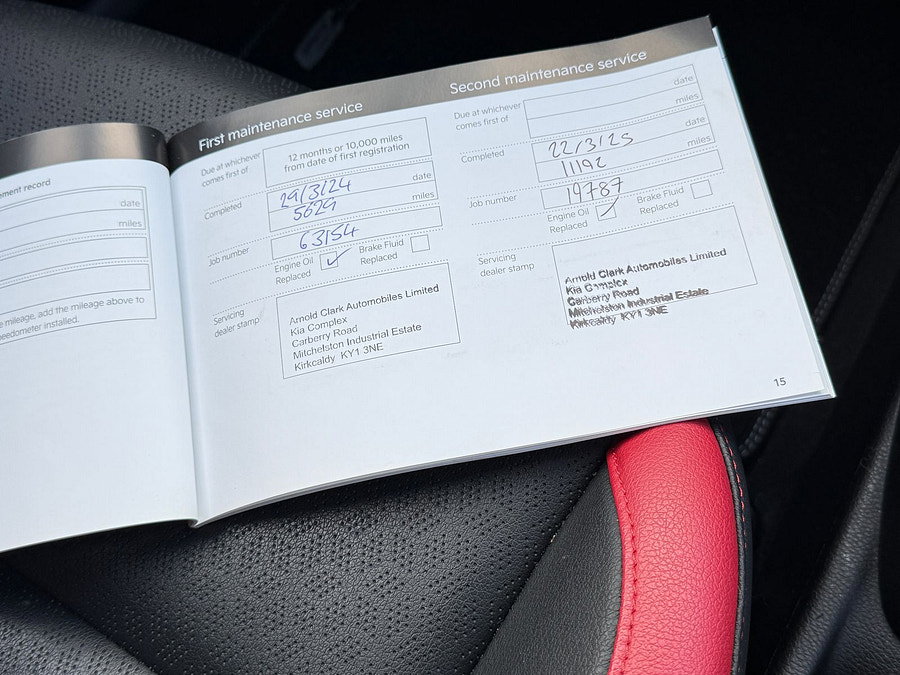 ement record
date
miles
e mileage, add the mileage above to
peedometer installed.
First maintenance service
Due at whichever
comes first of
12 months or 10,000 miles
from date of first registration
Completed
29/3/24 date
5629 miles
Job number
63154
Engine Oil
Replaced
Brake Fluid
Replaced
Servicing
dealer stamp
Arnold Clark Automobiles Limited
Kia Complex
Carberry Road
Mitchelston Industrial Estate
Kirkcaldy KY1 3NE
Second maintenance service
Due at whichever
comes first of
date
miles
Completed
22/3/25 date
11192 miles
Job number
19787
Engine Oil
Replaced
Brake Fluid
Replaced
Servicing
dealer stamp
Arnold Clark Automobiles Limited
Kia Complex
Carberry Road
Mitchelston Industrial Estate
Kirkcaldy KY1 3NE
15